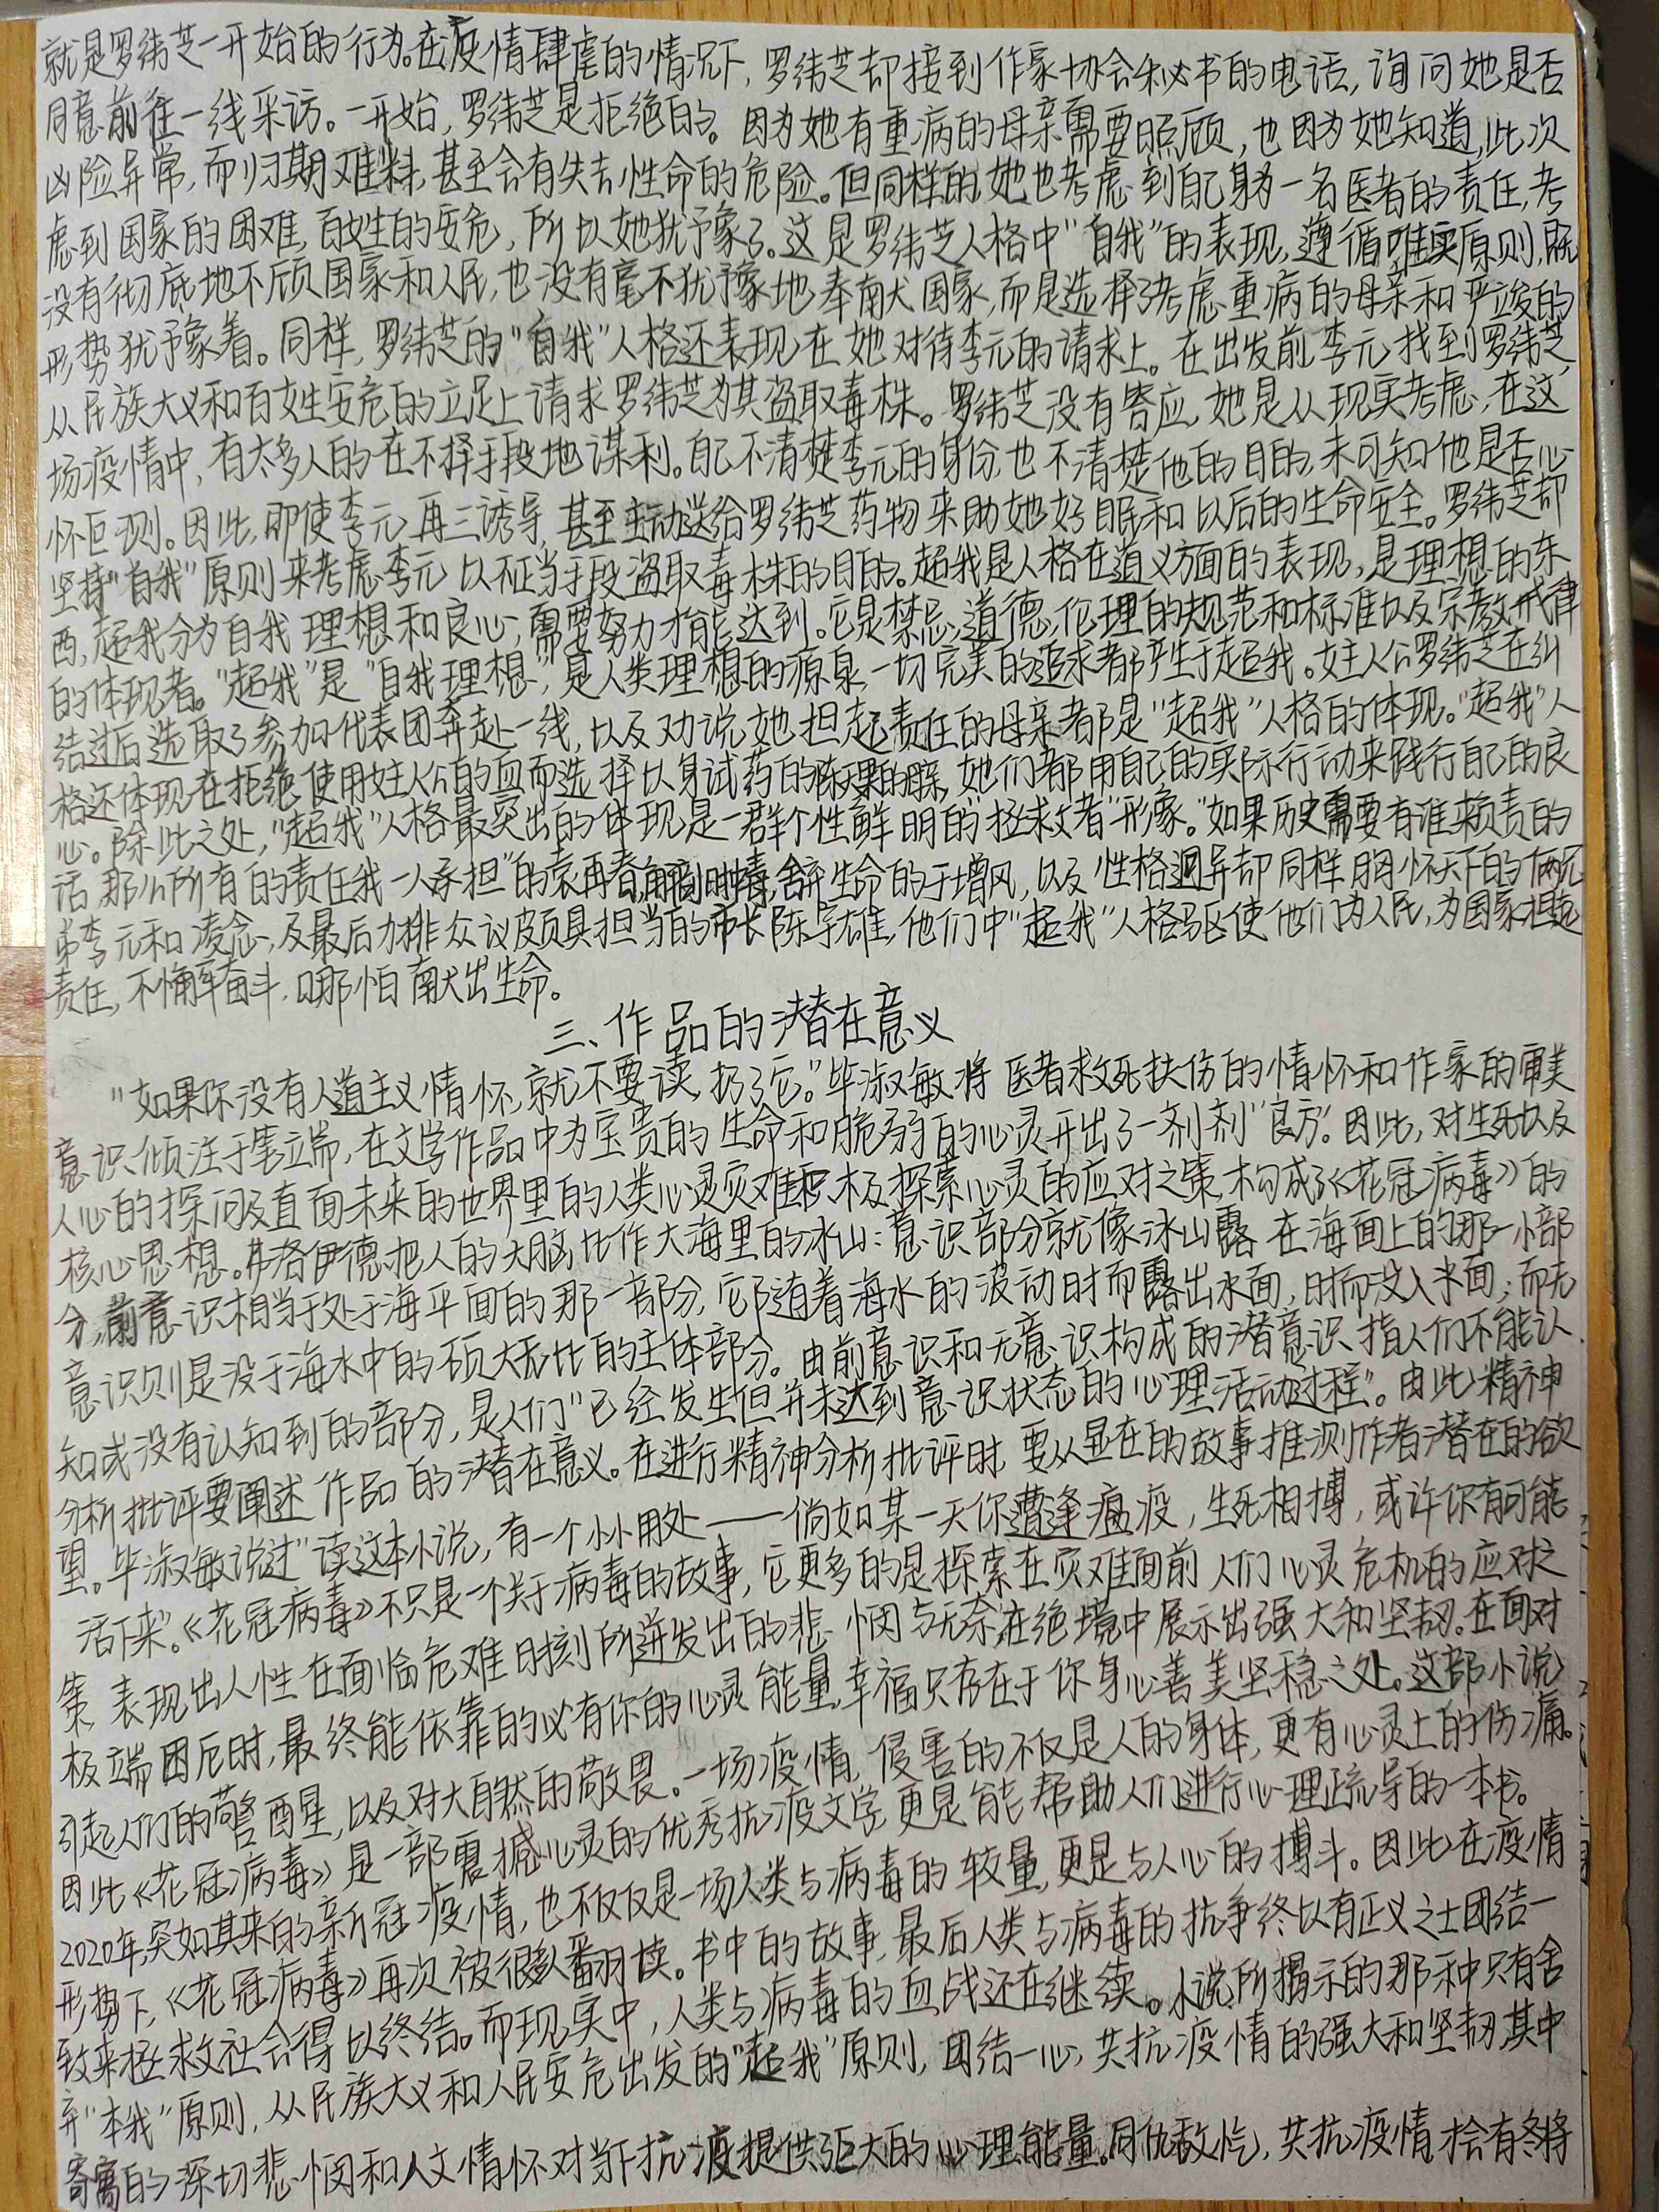 就是罗纬芝一开始的行为。在疫情肆虐的情况下，罗纬芝却接到作家协会秘书的电话，询问她是否
同意前往一线采访。一开始，罗纬芝是拒绝的。因为她有重病的母亲需要照顾，也因为她知道，此次
凶险异常，而归期难料，甚至会有失去性命的危险。但同样的，她也考虑到自己身为一名医者的责任，考
虑到国家的困难，百姓的安危，所以她犹豫了。这是罗纬芝人格中“自我”的表现，遵循唯实原则，既
没有彻底地不顾国家和人民，也没有毫不犹豫地奉献国家，而是选择了考虑重病的母亲和严峻的
形势犹豫着。同样，罗纬芝的“自我”人格还表现在她对待李元的请求上。在出发前，李元找到罗纬芝，
从民族大义和百姓安危的立足上请求罗纬芝为其盗取毒株。罗纬芝没有答应，她是从现实考虑，在这
场疫情中，有太多人的在不择手段地谋利。自己不清楚李元的身份，也不清楚他的目的，未可知他是否心
怀叵测。因此，即使李元再三诱导，甚至主动送给罗纬芝药物来助她好眠和以后的生命安全。罗纬芝却
坚持“自我”原则来考虑李元以不正当手段盗取毒株的目的。超我是人格在道义方面的表现，是理想的东
西，超我分为自我理想和良心，需要努力才能达到。它是禁忌，道德，伦理的规范和标准以及宗教戒律
的体现者。“超我”是“自我理想”，是人类理想的源泉，一切完美的追求都产生于超我。女主人公罗纬芝在纠
结过后选取了参加代表团奔赴一线，以及劝说她担起责任的母亲都是“超我”人格的体现。“超我”人
格还体现在拒绝使用女主人公的血而选择以身试药的陈天果的母亲，她们都用自己的实际行动来践行自己的良
心。除此之处，“超我”人格最突出的体现是一群个性鲜明的“拯救者”形象。“如果历史需要有谁来负责的
话，那么所有的责任我一人承担”的袁再春，舍弃生命的于增风，以及性格迥异却同样胸怀天下的师兄
弟李元和凌念，及最后力排众议颇具担当的市长陈宇雄，他们中“超我”人格驱使他们为人民，为国家担起
责任，不懈奋斗，哪怕献出生命。
三、作品的潜在意义
“如果你没有人道主义情怀，就不要读，扔了它。”毕淑敏将医者救死扶伤的情怀和作家的审美
意识倾注于笔端，在文学作品中为宝贵的生命和脆弱的心灵开出了一剂剂“良方”。因此，对生死以及
人心的探问及直面未来的世界里的人类心灵灾难，积极探索心灵的应对之策，构成了《花冠病毒》的
核心思想。弗洛伊德把人的大脑比作大海里的冰山：意识部分就像冰山露在海面上的那一小部
分，前意识相当于处于海平面的那一部分，它随着海水的波动时而露出水面，时而没入水面；而无
意识则是没于海水中的硕大无比的主体部分。由前意识和无意识构成的潜意识，指人们不能认
知或没有认知到的部分，是人们“已经发生但并未达到意识状态的心理活动过程”。由此精神
分析批评要阐述作品的潜在意义。在进行精神分析批评时，要从显在的故事推测作者潜在的欲
望。毕淑敏说过“读这本小说，有一个小小用处——倘如某一天你遭逢瘟疫，生死相搏，或许你有可能
活下来”。《花冠病毒》不只是一个关于病毒的故事，它更多的是探索在灾难面前人们心灵危机的应对之
策，表现出人性在面临危难时刻所迸发出的悲悯与无奈，在绝境中展示出强大和坚韧。在面对
极端困厄时，最终能依靠的必有你的心灵能量，幸福只存在于你身心善美坚稳之处。这部小说
引起人们的警醒，以及对大自然的敬畏。一场疫情，侵害的不仅是人的身体，更有心灵上的伤痛。
因此《花冠病毒》是一部震撼心灵的优秀抗疫文学，更是能帮助人们进行心理疏导的一本书。
2020年，突如其来的新冠疫情，也不仅仅是一场人类与病毒的较量，更是与人心的搏斗。因此在疫情
形势下，《花冠病毒》再次被很多人翻读。书中的故事，最后人类与病毒的抗争终以有正义之士团结一
致来拯救社会得以终结。而现实中，人类与病毒的血战还在继续。小说所揭示的那种只有舍
弃“本我”原则，从民族大义和人民安危出发的“超我”原则，团结一心，共抗疫情的强大和坚韧，其中
寄寓的深切悲悯和人文情怀对当下抗疫提供强大的心理能量。同仇敌忾，共抗疫情，才会有冬将